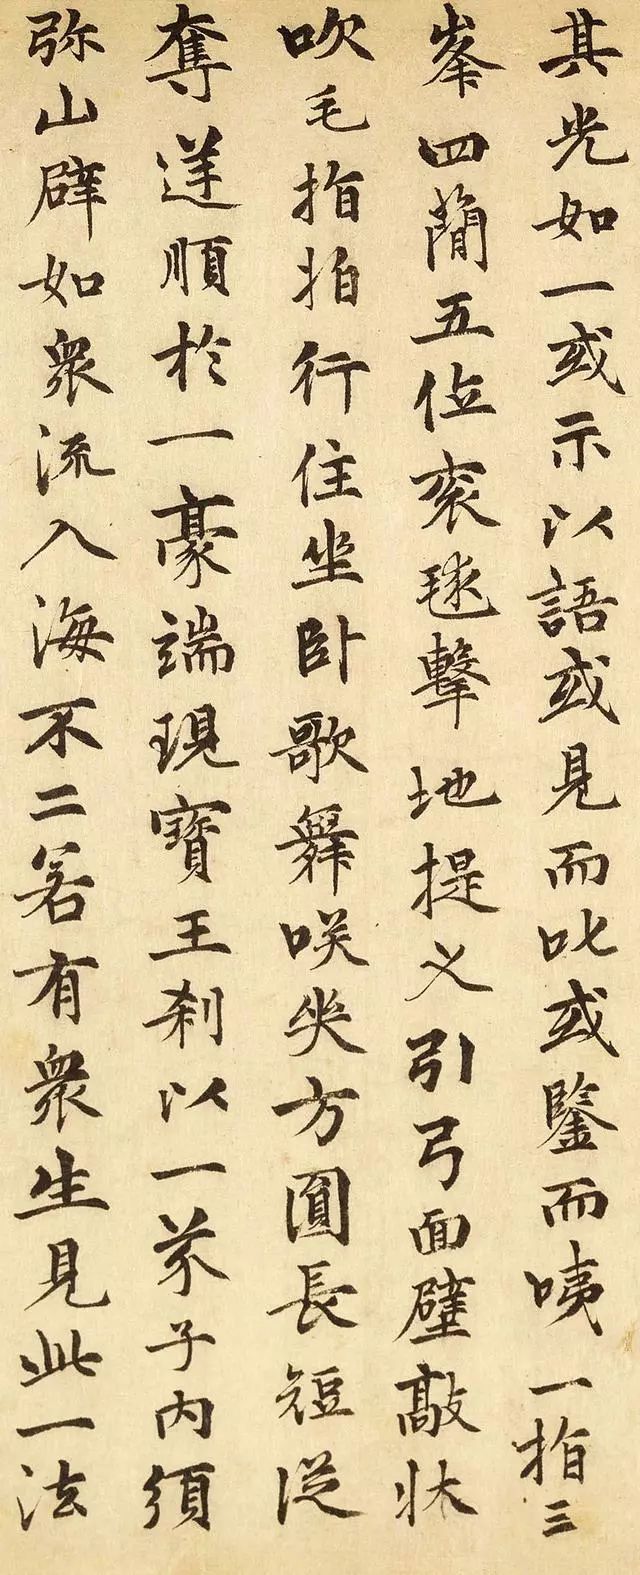 其光如一或示以語或見而叱或鑒而咦一指三
峯四蕳五位衮毬擊地提义引弓面壁敲牀
吹毛指拍行住坐卧歌舞咲哭方圓長短従
奪逆順於一豪端現寶王刹以一芥子内須
弥山辟如衆流入海不二若有衆生見此一法